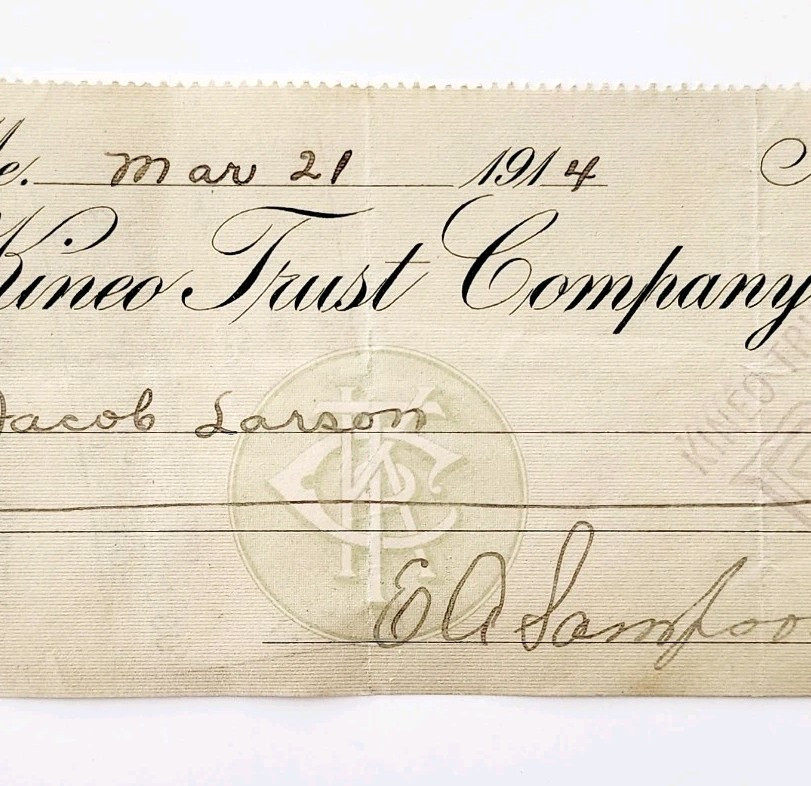 Me. Mar 21 1914
Kineo Trust Company
Jacob Larson
KTC
KINEO TR
E A Sampso